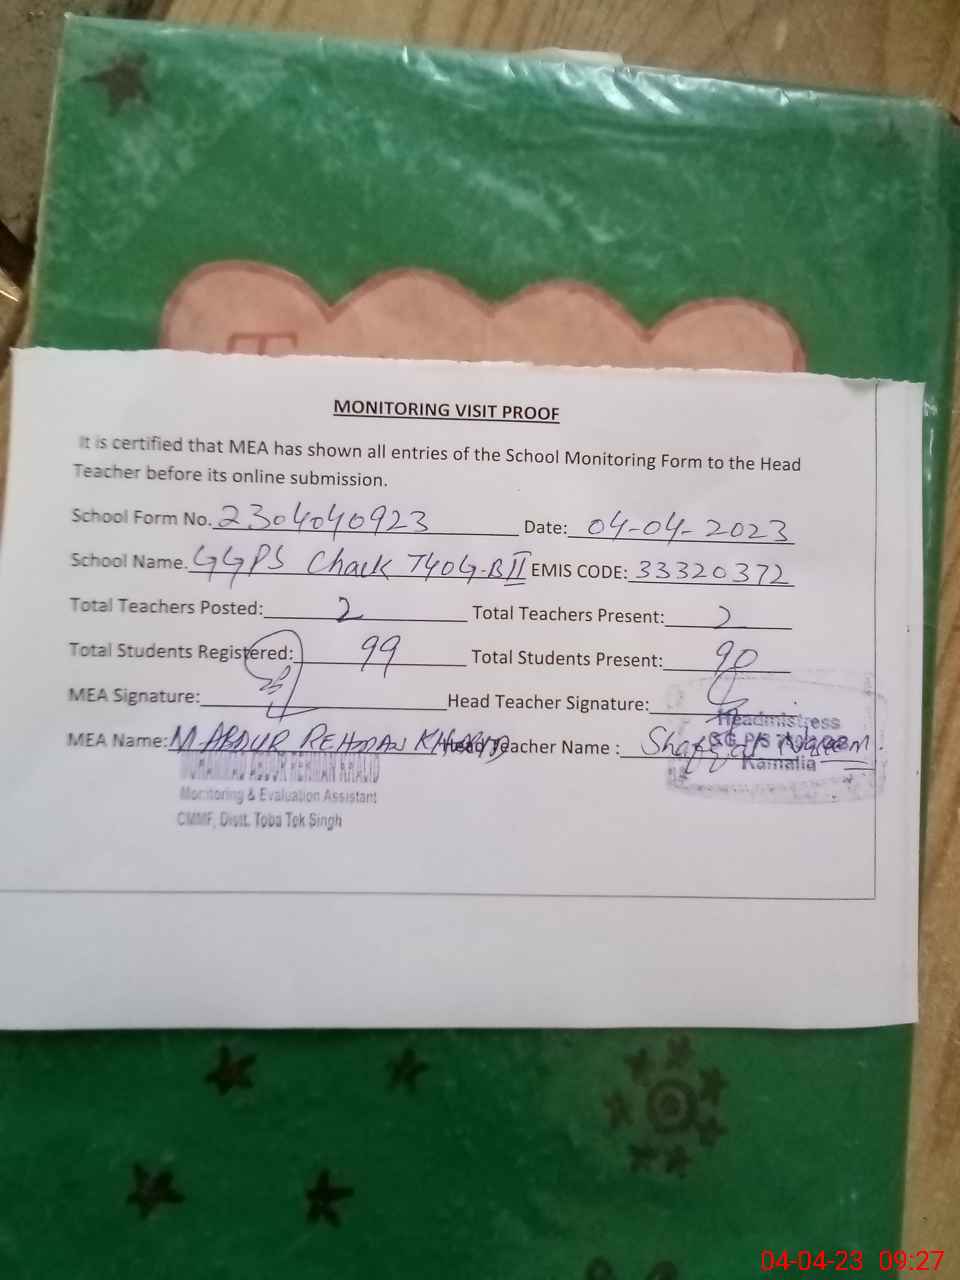 T
MONITORING VISIT PROOF
It is certified that MEA has shown all entries of the School Monitoring Form to the Head
Teacher before its online submission.
School Form No. 2304040923 Date: 04-04-2023
School Name. GGPS Chack 740G-B II EMIS CODE: 33320372
Total Teachers Posted: 2 Total Teachers Present: 2
Total Students Registered: 99 Total Students Present: 90
MEA Signature: Head Teacher Signature:
Headmistress
MEA Name: M ABDUR REHMAN KHALID Head Teacher Name :
Kamalia
MUHAMMAD ABDUR REHMAN KHALID
Monitoring & Evaluation Assistant
CMMF, Distt. Toba Tek Singh
04-04-23 09:27